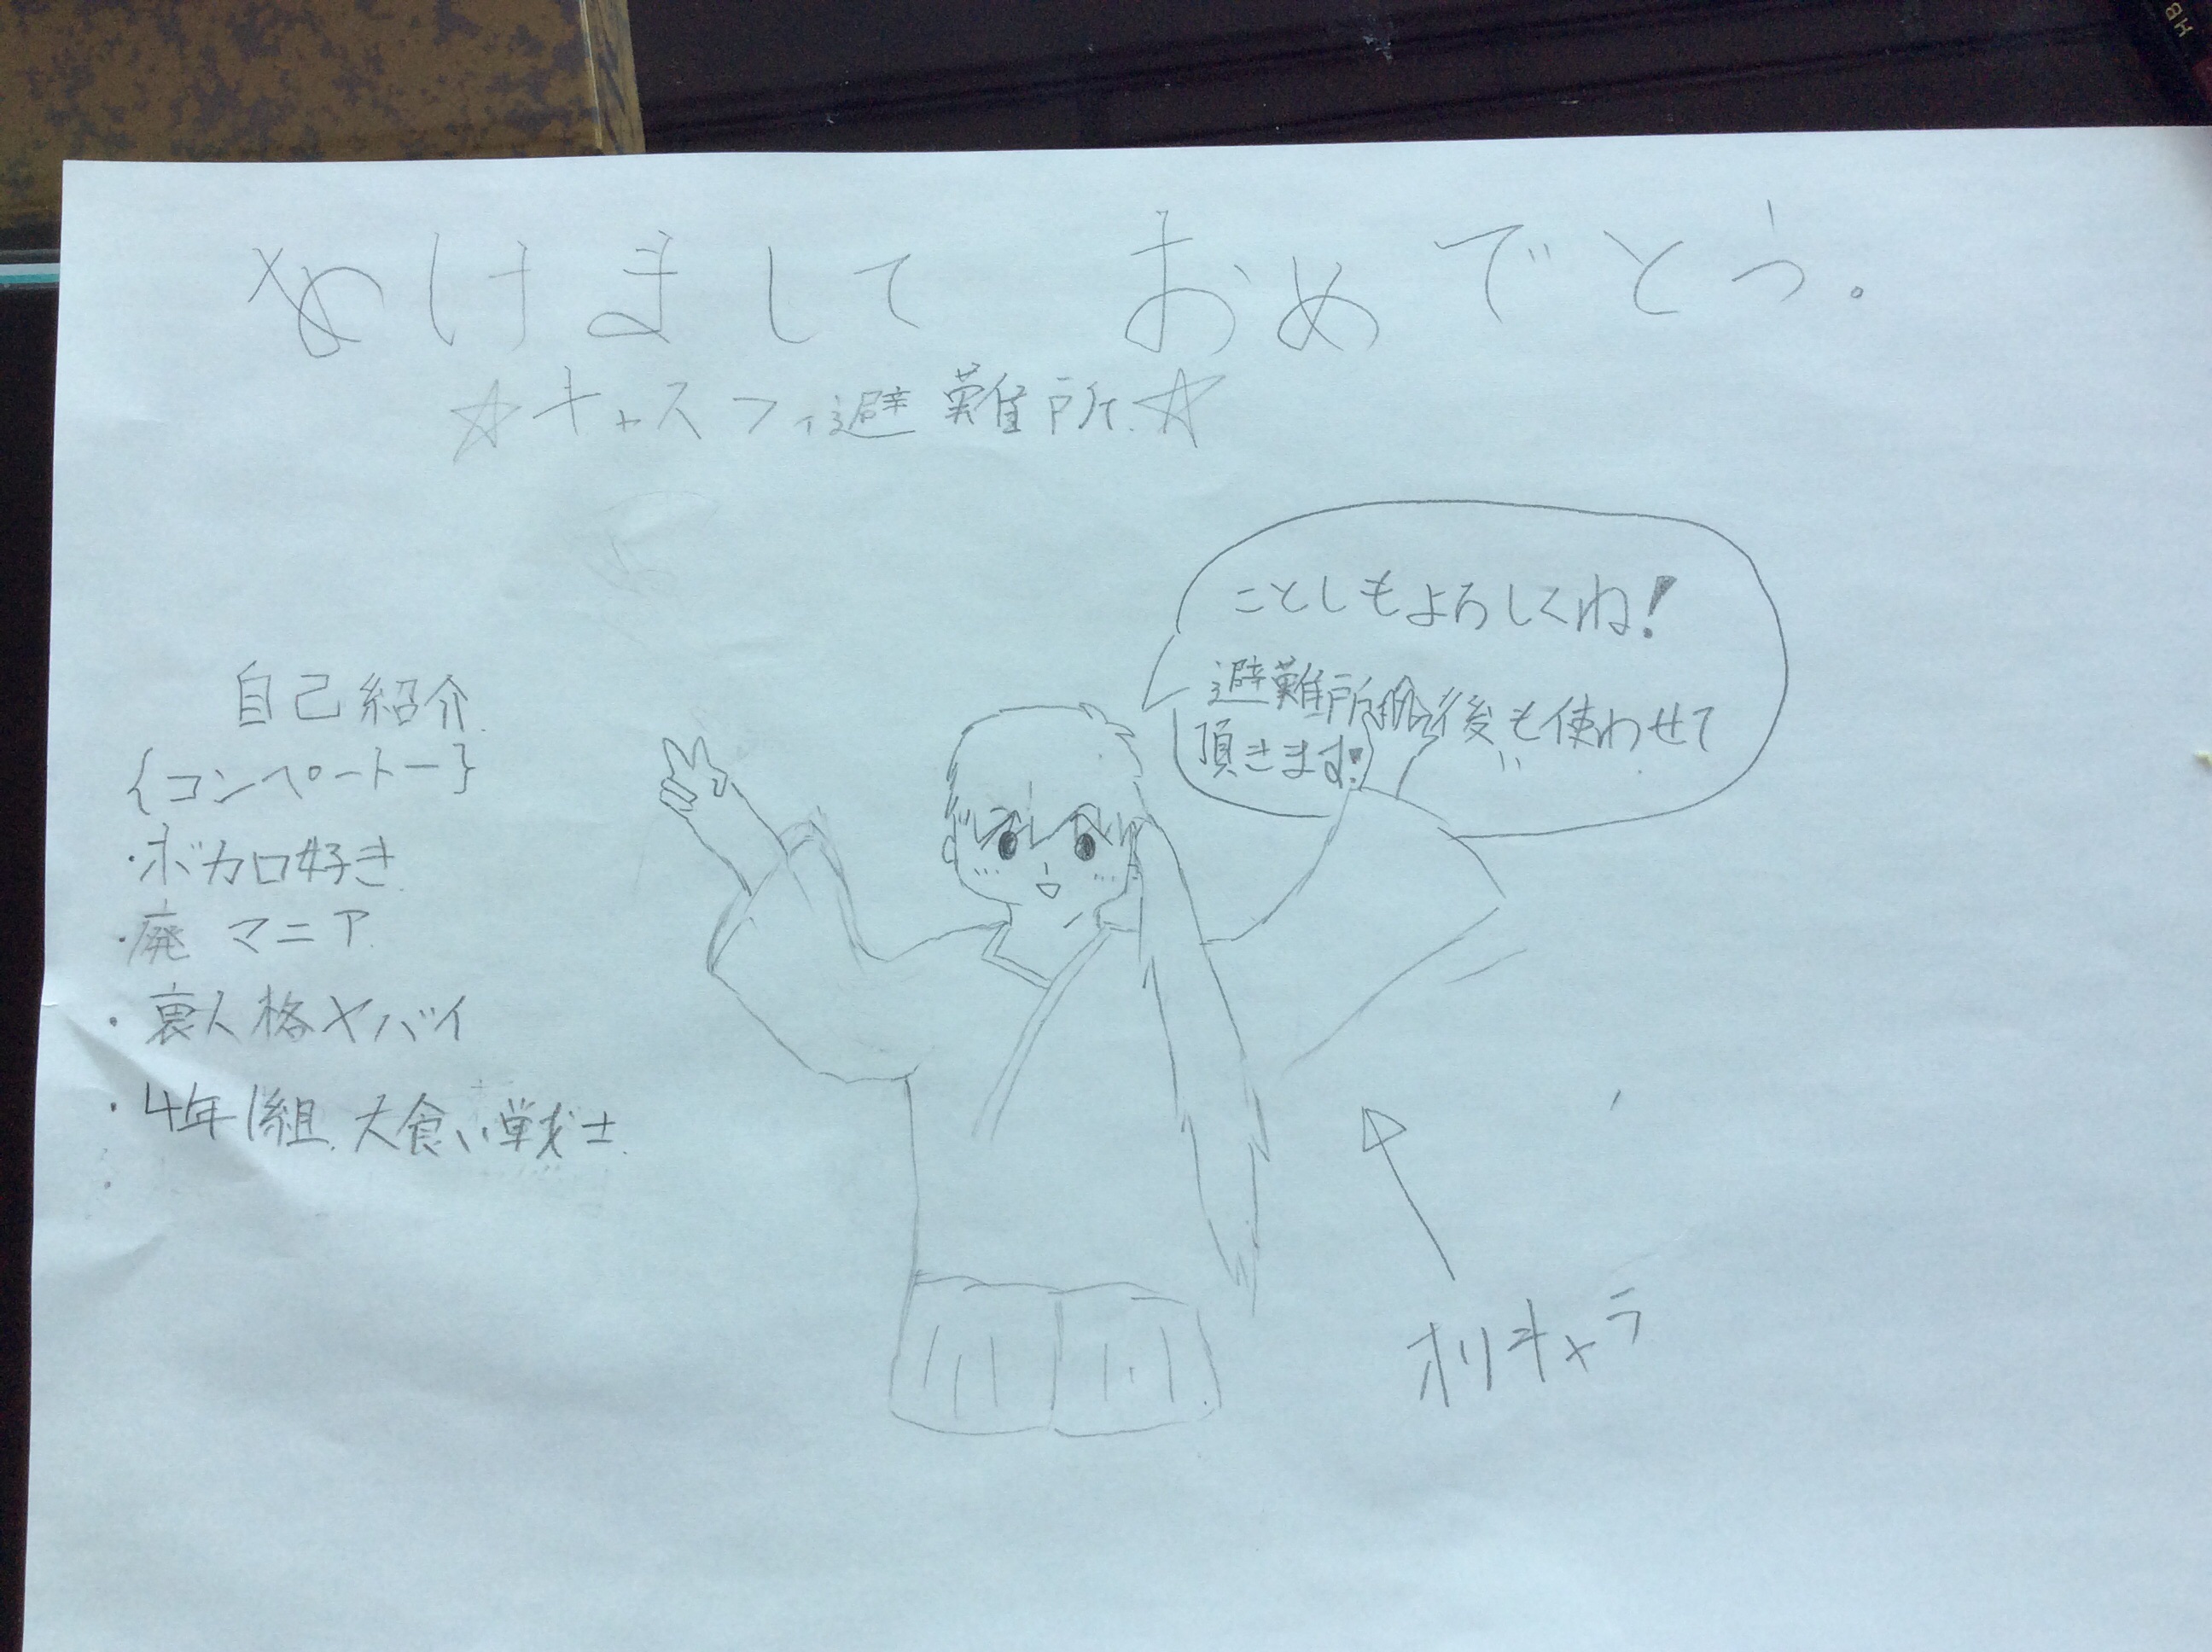 あけまして おめでとう。
☆キャスフィ避難所☆
ことしもよろしくね!
避難所 今後も使わせて
頂きます!
自己紹介
{コンペートー}
・ボカロ好き
・廃マニア
・裏人格ヤバイ
・4年1組 大食い戦士
オリキャラ
HB